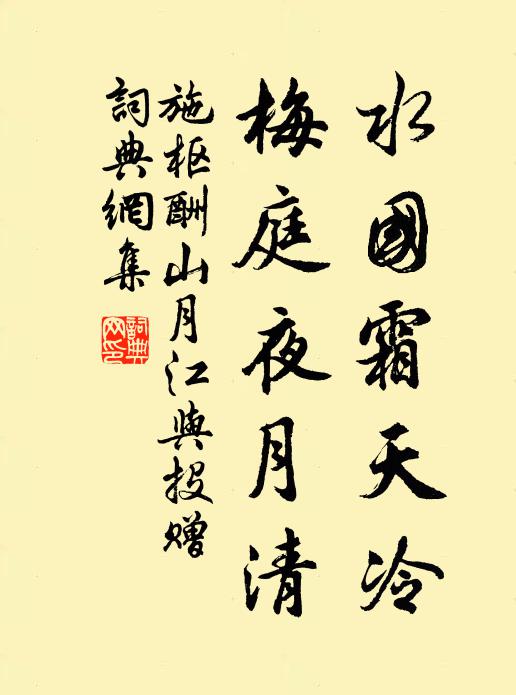 水國霜天冷
梅庭夜月清
施枢酬山月江與投赠
詞典網集
詞典网印